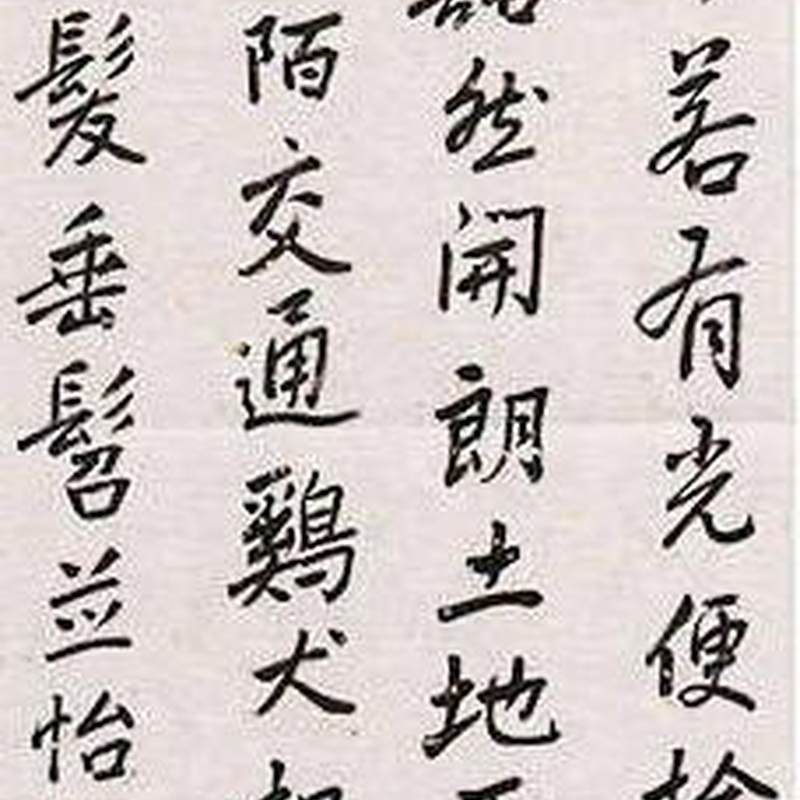 若有光便捨
然開朗土地平
陌交通鷄犬相
髮垂髫並怡